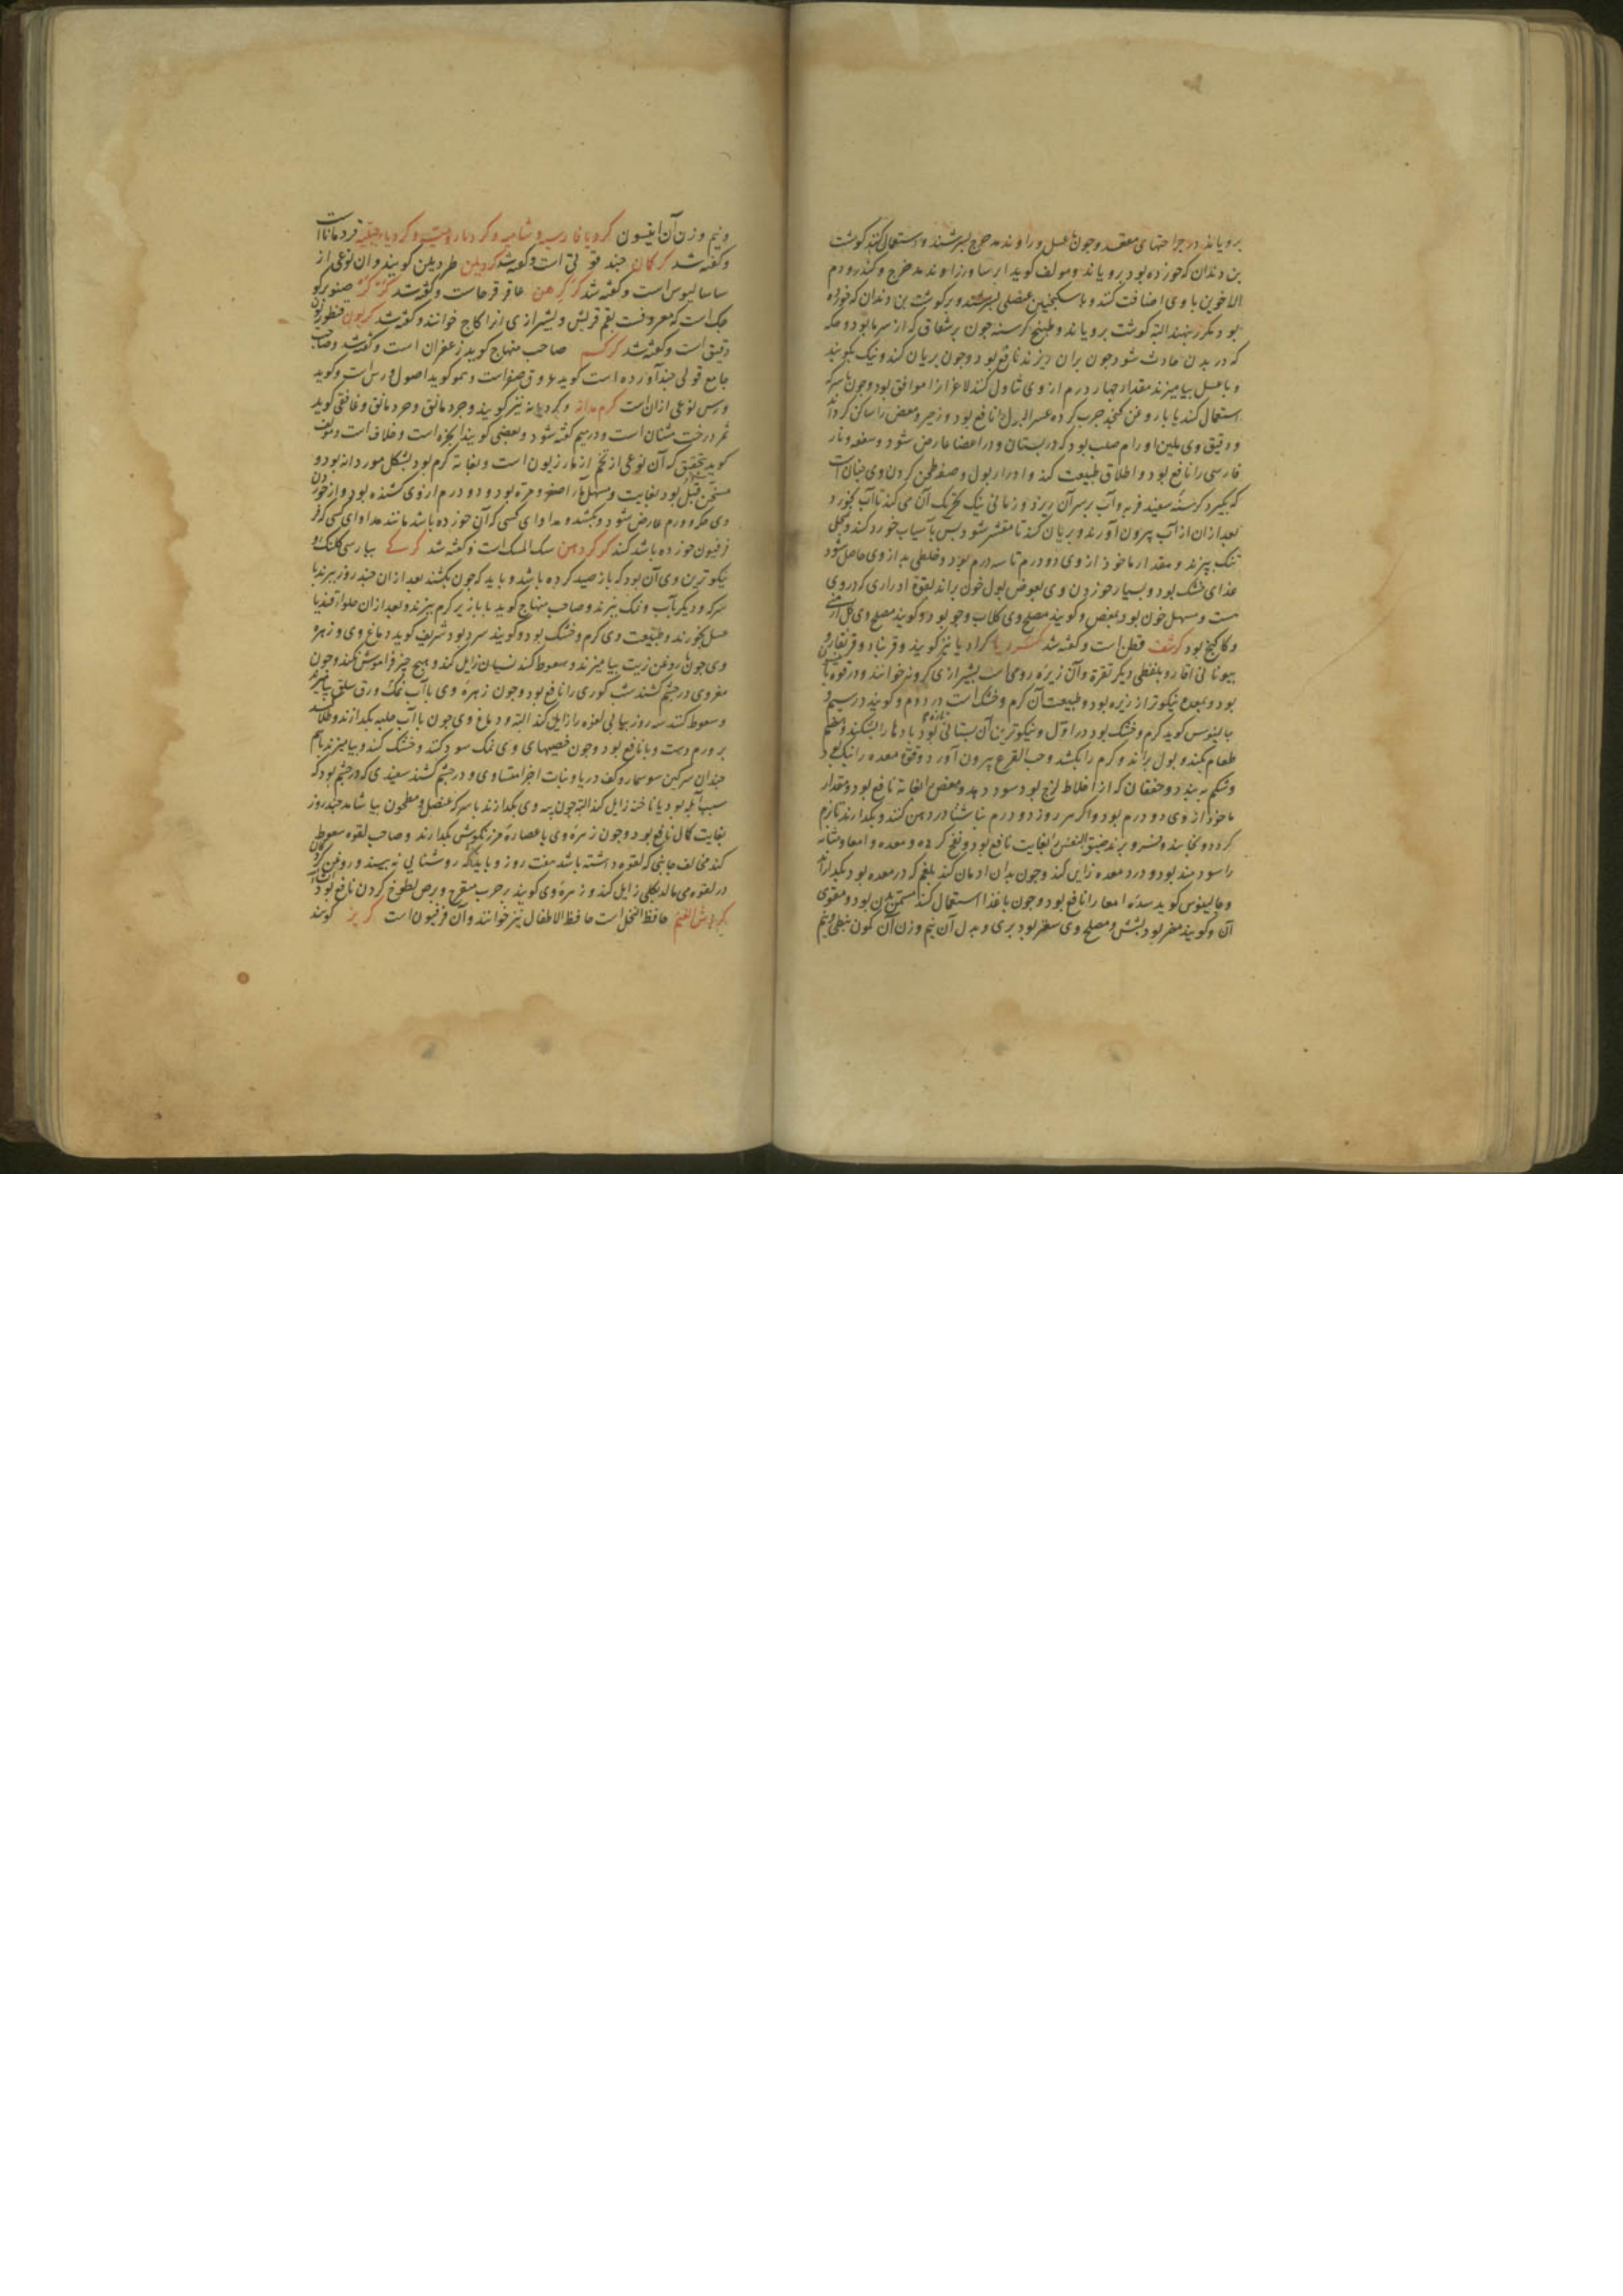 برویاند در جراحتهای معقد و چون با عسل و راوند مدحرج بسرشند و استعمال کنند گوشت
بن دندان که خورده بود برویاند و مولف گوید ایرسا و زراوند مدحرج و کندر و دم
الاخوین با وی اضافت کنند و با سکنجبین عنصلی بسرشند و بر گوشت بن دندان که خورده
بود دیگر بنهند البته گوشت برویاند و طبیخ کرسنه چون بر شقاق که از سرما بود و حکه
که در بدن حادث شود چون بران ریزند نافع بود و چون بریان کنند و نیک بکوبند
و با عسل بیامیزند مقدار چهار درم از وی تناول کنند لاغرانرا موافق بود و چون با سرکه
استعمال کنند یا با روغن کنجد چرب کرده عسر البول را نافع بود و زحیر و مغص را ساکن گرداند
و دقیق وی ملین اورام صلب بود که در پستان و در اعضا عارض شود و سعفه و نار
فارسی را نافع بود و اطلاق طبیعت کند و ادرار بول و صفه طحن کردن وی چنان است
که بگیرد کرسنه سفید فربه و آب بر سر آن ریزد و زمانی نیک تحریک آن می کند تا آب بخورد و
بعد ازان از آب بیرون آورند و بریان کنند تا مقشر شود پس باسیاب خورد کنند و بخلی
تنک بپزند و مقدار ماخوذ از وی دو درم تا سه درم بود و خلطی بد از وی حاصل شود
غذای خشک بود و بسیار خوردن وی بعوض بول خون براند لقوة ادراری که در وی
هست و مسهل خون بود بمغص و گویند مصلح وی گلاب و جو بود و گویند مصلح وی گل ارمنی
و کاکنج بود کرشف قطن است و گفته شد کرویا کراویا نیز گویند و قرنباد و قرنقار و
بیونانی اقارو بلفظی دیگر تقرة و آن زیره رومی است بشیرازی کرویه خوانند و در قوة
بود و بمعده نیکوتر از زیره بود و طبیعت آن گرم و خشک است در دوم و گویند در سیم و
جالینوس گوید گرم و خشک بود در اول و نیکوترین آن بستانی تازه بود بادها را بشکند و هضم
طعام بکند و بول براند و کرم را بکشد و حب القرع بیرون آورد و قوة معده را نیک بود
و شکم ببندد و خفقان که از اخلاط لزج بود سود دهد و مغص را بغایة نافع بود و مقدار
ماخوذ از وی دو درم بود و اگر هر روز دو درم ناشتا در دهن کنند و بگذارند تا نرم
گردد و بخایند و فرو برند ضیق النفس را بغایت نافع بود و نفخ گرده و معده و امعا و مثانه
را سودمند بود و درد معده زایل کند و چون بدان ادمان کنند بلغم که در معده بود بگدازاند
و جالینوس گوید سده امعا را نافع بود و چون با غذا استعمال کنند مسخن بدن بود و مقوی
آن و گویند مضر بود بشش و مصلح وی سعتر بود بری و بدل آن نیم وزن آن کمون نبطی و نیم
و نیم وزن آن انیسون کرویا فارسیه و شامیه و کرویاء رومیه و کرویاء جبلیه قردماناست
و گفته شد کرکان جند قوقی است و گفته شد کردیلن طردیلن گویند و آن نوعی از
ساسالیوس است و گفته شد کرکرهن عاقرقرحاست و گفته شد کرکر صنوبر کو
چک است که معروفست بقم قریش و بشیرازی انرا کاج خوانند و گفته شد کریون قنطوریون
دقیق است و گفته شد کرکم صاحب منهاج گوید زعفران است و گفته شد و صاحب
جامع قولی چند آورده است گوید عروق صفراست و هم گوید اصول ورس است و گوید
ورس نوعی ازان است کرم دانه و کردانه نیز گویند و جردمانق و حردمانق و غافقی گوید
ثمر درخت مثنان است و در میم گفته شود و بعضی گویند انجره است و خلاف است و مولف
گوید بتحقیق که آن نوعی از تخم از مازریون است و بغایة گرم بود بشکل مورددانه بود و
مسخن قبل بود بغایت و مسهل مره اصفر و مرة بود و دو درم از وی کشنده بود و از خوردن
وی حکه و ورم عارض شود و بکشد و مداوای کسی که آن خورده باشد مانند مداوای کسی که فر
فرفیون خورده باشد کنند کرکردهن سک المسک است و گفته شد کرکی بپارسی کلنگ و
نیکوترین وی آن بود که باز صید کرده باشد و باید که چون بکشند بعد ازان چند روز بپزند با
سرکه و دیگر بآب و نمک بپزند و صاحب منهاج گوید با بازیر گرم بپزند و بعد ازان حلوا قند یا
عسل بخورند و طبیعت وی گرم و خشک بود و گویند سرد بود شریف گوید دماغ وی و زهره
وی چون با روغن زیت بیامیزند و سعوط کنند نسیان زایل کند و هیچ چیز فراموش نکند و چون
مغز وی در چشم کشند شب کوری را نافع بود و چون زهره وی با آب نمک ورق سلق بیامیزند
و سعوط کنند سه روز پیاپی لقوه را زایل کند البته و دماغ وی چون با آب حلبه بگدازند و طلا کنند
بر ورم دست و پا نافع بود و چون خصیهای وی نمک سود کنند و خشک کنند و بیامیزند با هم
چندان سرگین سوسمار و کف دریا و نبات اجزا متساوی و در چشم کشند سفیدی که در چشم بود که
بسبب آبله بود یا ناخنه زایل کند البته چون پیه وی بگدازند با سرکه عنصل و مطحون بیاشامد چند روز
بغایت کمال نافع بود و چون زهره وی با عصاره مرزنگوش بگدازند و صاحب لقوه سعوط
کند مخالف جانبی که لقوه داشته باشد هفت روز و باید که روشنایی نبیند و روغن گردکان
در لقوه می مالد بکلی زایل کند و زهره وی گویند بر جرب متقرح و برص لطوخ کردن نافع بود
حافظ النحل است حافظ الاطفال نیز خوانند و آن فرفیون است کریز گویند